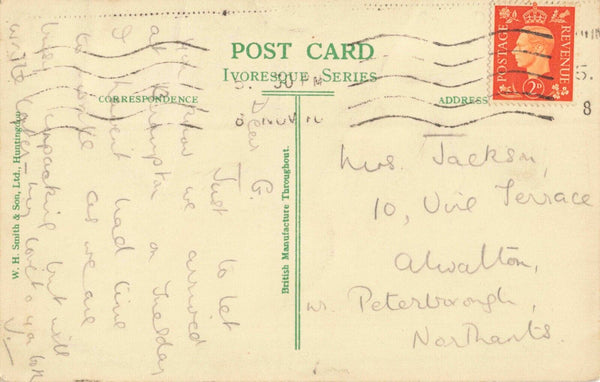 POST CARD
IVORESQUE SERIES
CORRESPONDENCE
ADDRESS
POSTAGE
REVENUE
2D
8
W. H. Smith & Son, Ltd., Huntingdon
British Manufacture Throughout.
Dear G.
Just to let
you know we arrived
at Brampton on Tuesday
I haven't had time
to write as we are
busy unpacking but will
write later. My love to you both
V.
Mrs. Jackson,
10, Vine Terrace
Alwalton,
nr. Peterborough,
Northants.